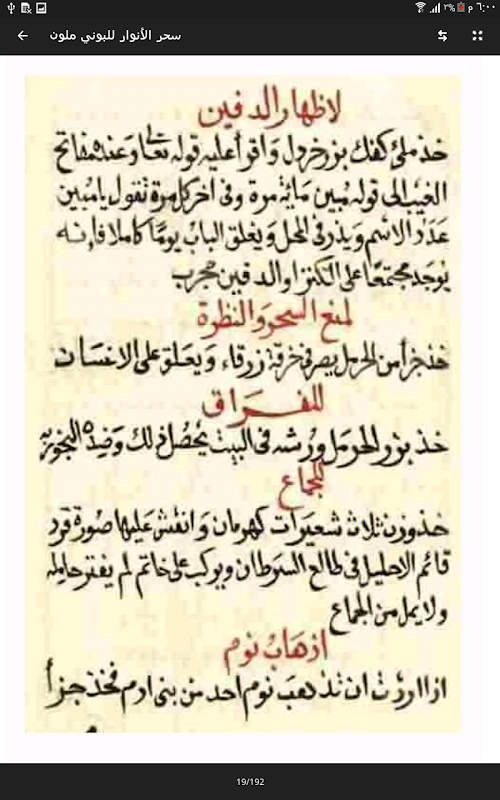 ٦:٠٠ م ٢%
سحر الأنوار للبوني ملون
لاظهار الدفين
خذ ملئ كفك بزر خردل واقرأ عليه قوله تعالى وعنده مفاتح
الغيب الى قوله مبين ماية مرة وفى اخر كل مرة تقول يا مبين
عدد الاسم ويذر فى المحل ويغلق الباب يوما كاملا فانه
يوجد مجتمعا على الكنز او الدفين مجرب
لمنع السحر والنظرة
خذ جزأ من الحرمل يصر فى خرقة زرقاء ويعلق على الانسان
للفراق
خذ بزر الحرمل ورشه فى البيت يحصل ذلك وضده التبخير به
للجماع
خذ وزن ثلاث شعيرات كهرمان وانقش عليها صورة قرد
قائم الاحليل فى طالع السرطان ويركب على خاتم لم يفتر حامله
ولا يمل من الجماع
اذهاب نوم
اذا اردت ان تذهب نوم احد من بنى ادم فخذ جزأ
19/192